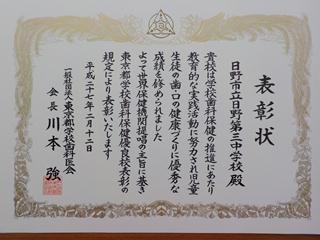 表彰状
日野市立日野第三中学校 殿
貴校は学校歯科保健の推進にあたり
教育的な実践活動に努力され児童
生徒の歯・口の健康づくりに優秀な
成績を修められました
よって世界保健機関提唱の主旨に基き
東京都学校歯科保健優良校表彰の
規定により表彰いたします
平成二十七年二月十二日
一般社団法人東京都学校歯科医会
会長 川本 強